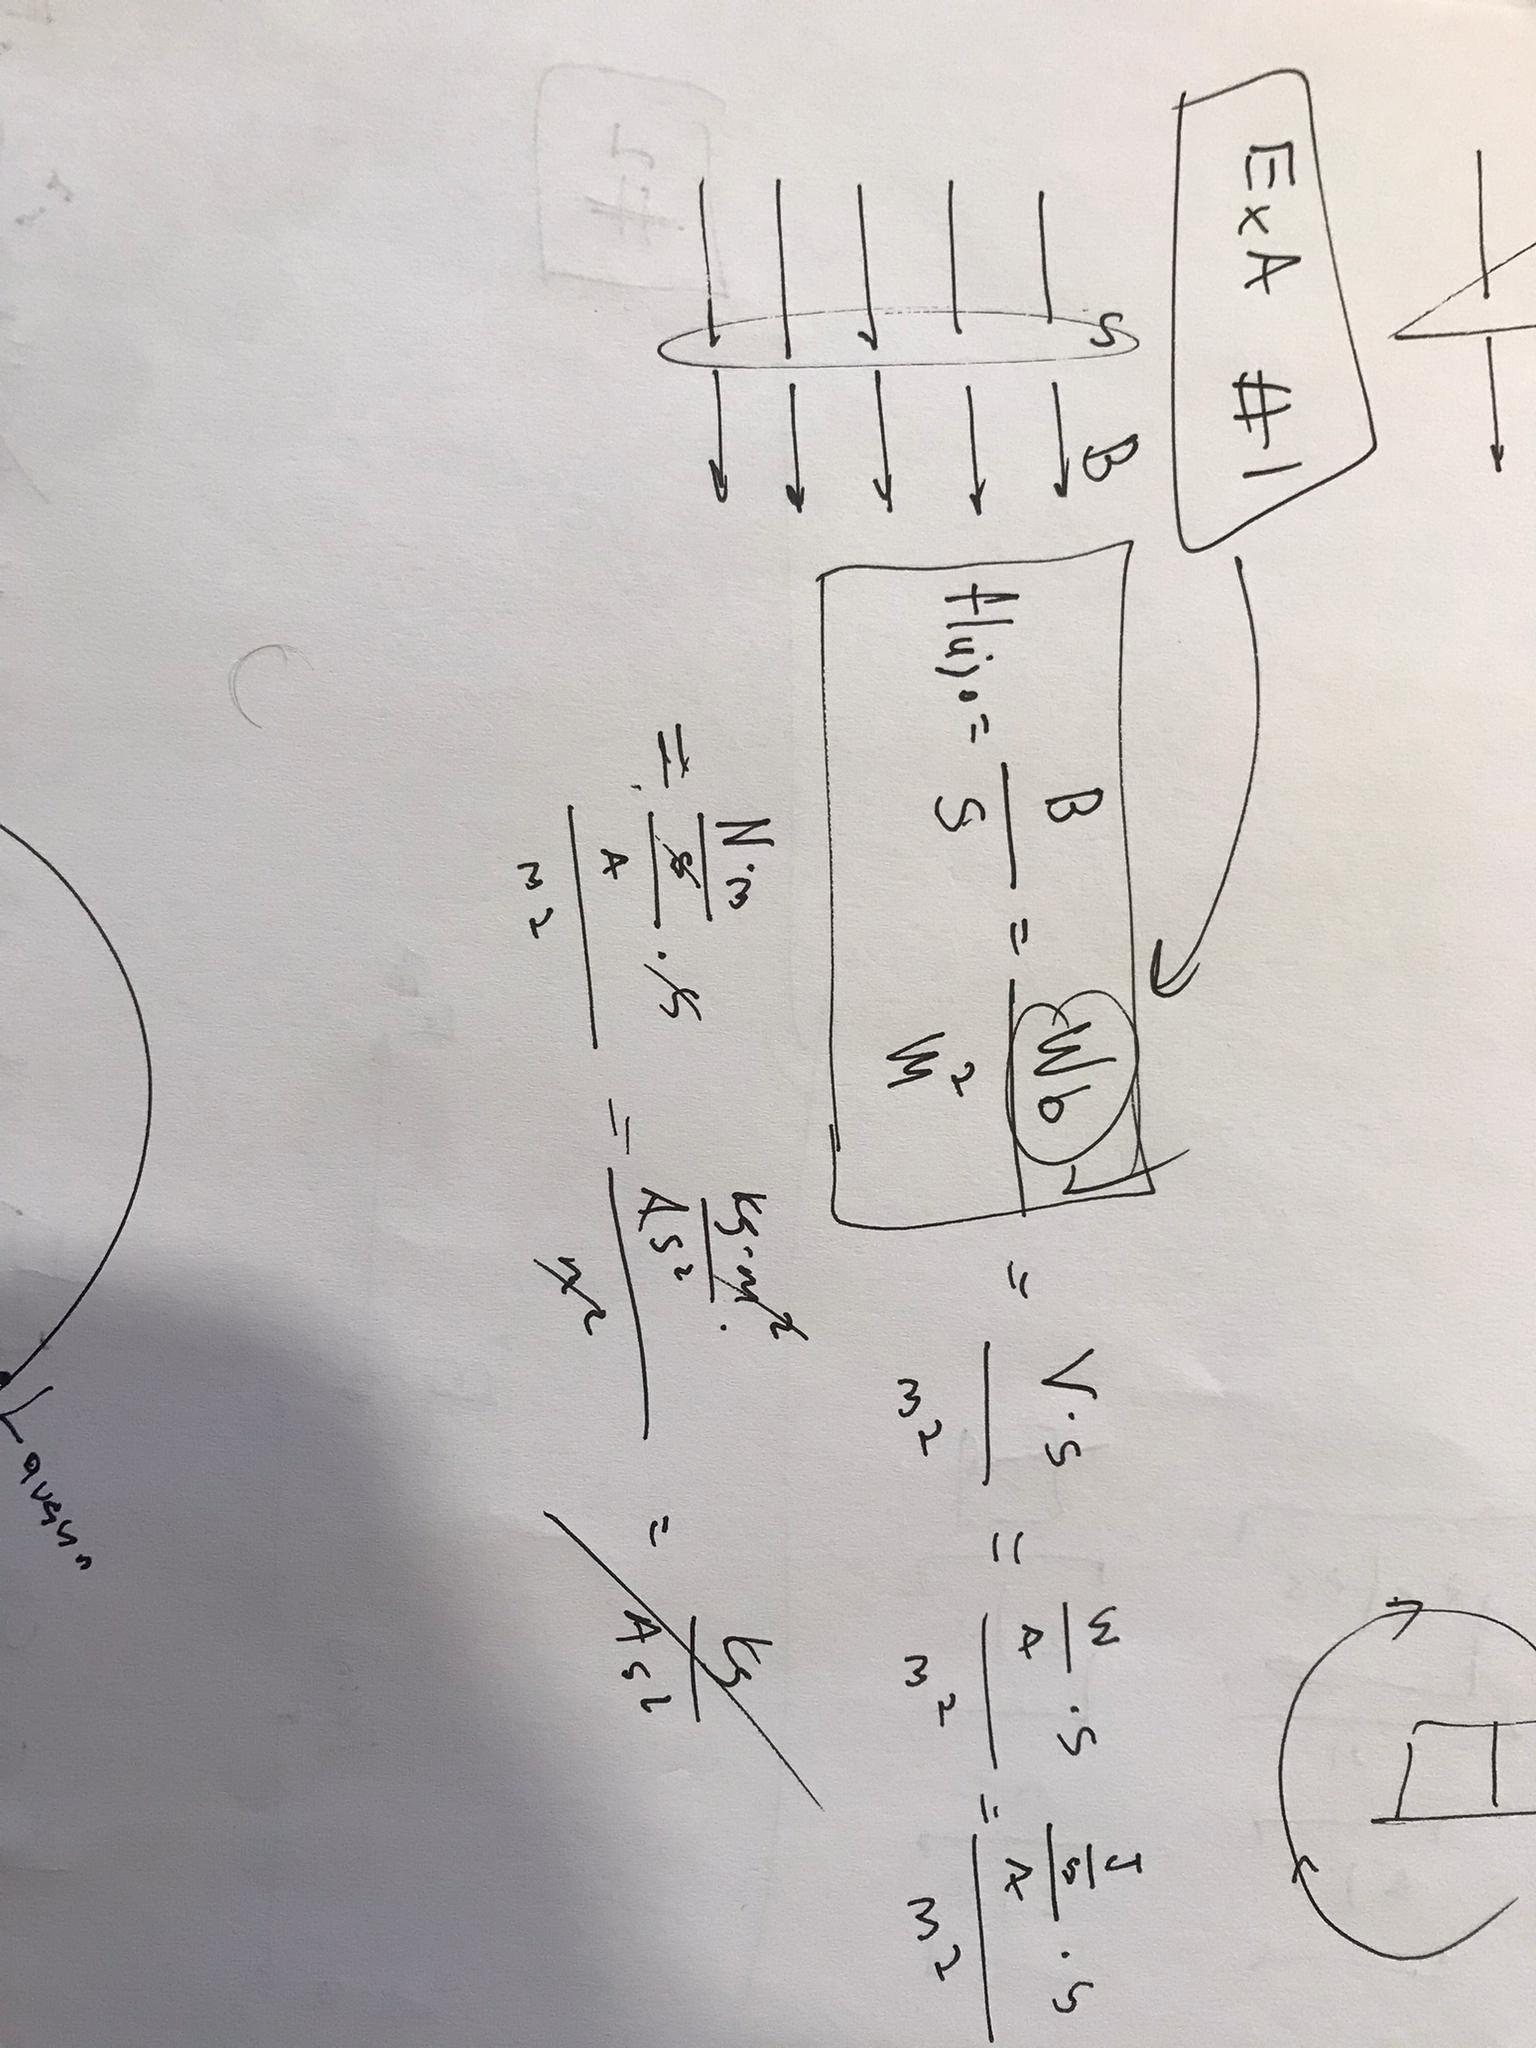 ExA #1
S
B
flujo = B/S = Wb/m² = V·s/m² = (W/A · s)/m² = ((J/s)/A · s)/m²
= ((N·m/s)/A · s)/m² = (kg·m²/As²)/m² = kg/As²